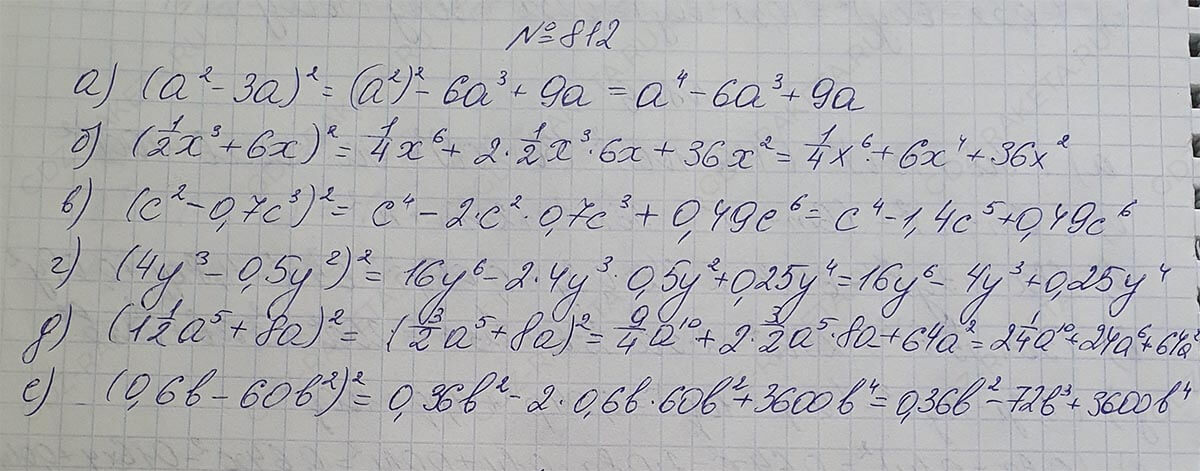 №812
а) (a² - 3a)² = (a²)² - 6a³ + 9a = a⁴ - 6a³ + 9a
б) (½x³ + 6x)² = ¼x⁶ + 2·½x³·6x + 36x² = ¼x⁶ + 6x⁴ + 36x²
в) (c² - 0,7c³)² = c⁴ - 2·c²·0,7c³ + 0,49c⁶ = c⁴ - 1,4c⁵ + 0,49c⁶
г) (4y³ - 0,5y²)² = 16y⁶ - 2·4y³·0,5y² + 0,25y⁴ = 16y⁶ - 4y³ + 0,25y⁴
д) (1½a⁵ + 8a)² = (3/2a⁵ + 8a)² = 9/4a¹⁰ + 2·3/2a⁵·8a + 64a² = 2¼a¹⁰ + 24a⁶ + 64a²
е) (0,6b - 60b²)² = 0,36b² - 2·0,6b·60b² + 3600b⁴ = 0,36b² - 72b³ + 3600b⁴